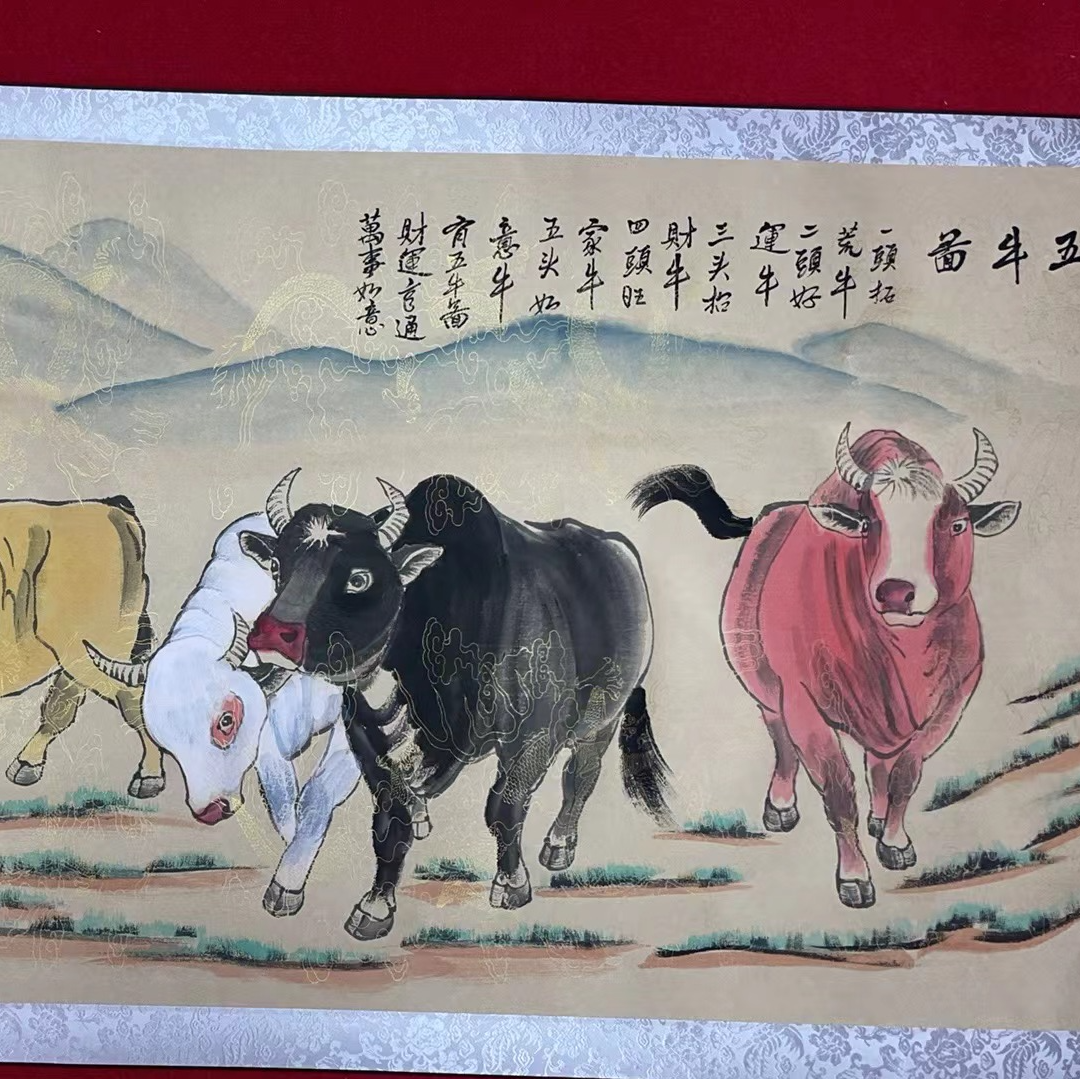 五牛啚
一頭拓
荒牛
二頭好
運牛
三头招
財牛
四頭旺
家牛
五头如
意牛
有五牛啚
財運亨通
萬事如意